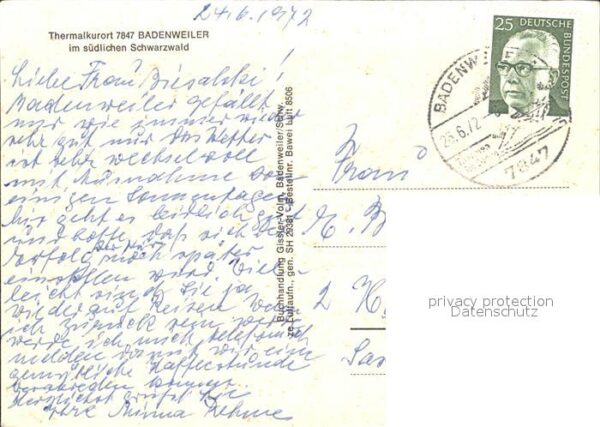 24.6.1972
Thermalkurort 7847 BADENWEILER
im südlichen Schwarzwald
Liebe Frau Biesalski!
Badenweiler gefällt
mir wie immer wieder
sehr gut nur das Wetter
ist sehr wechselvoll
mit Ausnahme von
einigen Sonnentagen
Mir geht es leidlich gut
und hoffe, daß sich der
Erfolg der Kur noch später
einstellen wird. Viel-
leicht sind Sie ja
wieder auf Reisen. Wenn
ich zurück bin
werde ich mich telefonisch
melden damit wir eine
gemütliche Kaffeestunde
verabreden können.
Herzlichst grüßt Sie
Ihre Minna Dehme
Buchhandlung Gissler-Vollm, Badenweiler/Schw.
ze Luftaufn., gen. SH 29381 - Bestellnr. Bawei Luft 8506
25 DEUTSCHE BUNDESPOST
BADENWEILER
7847
Frau
M. B
2 H
privacy protection
Datenschutz